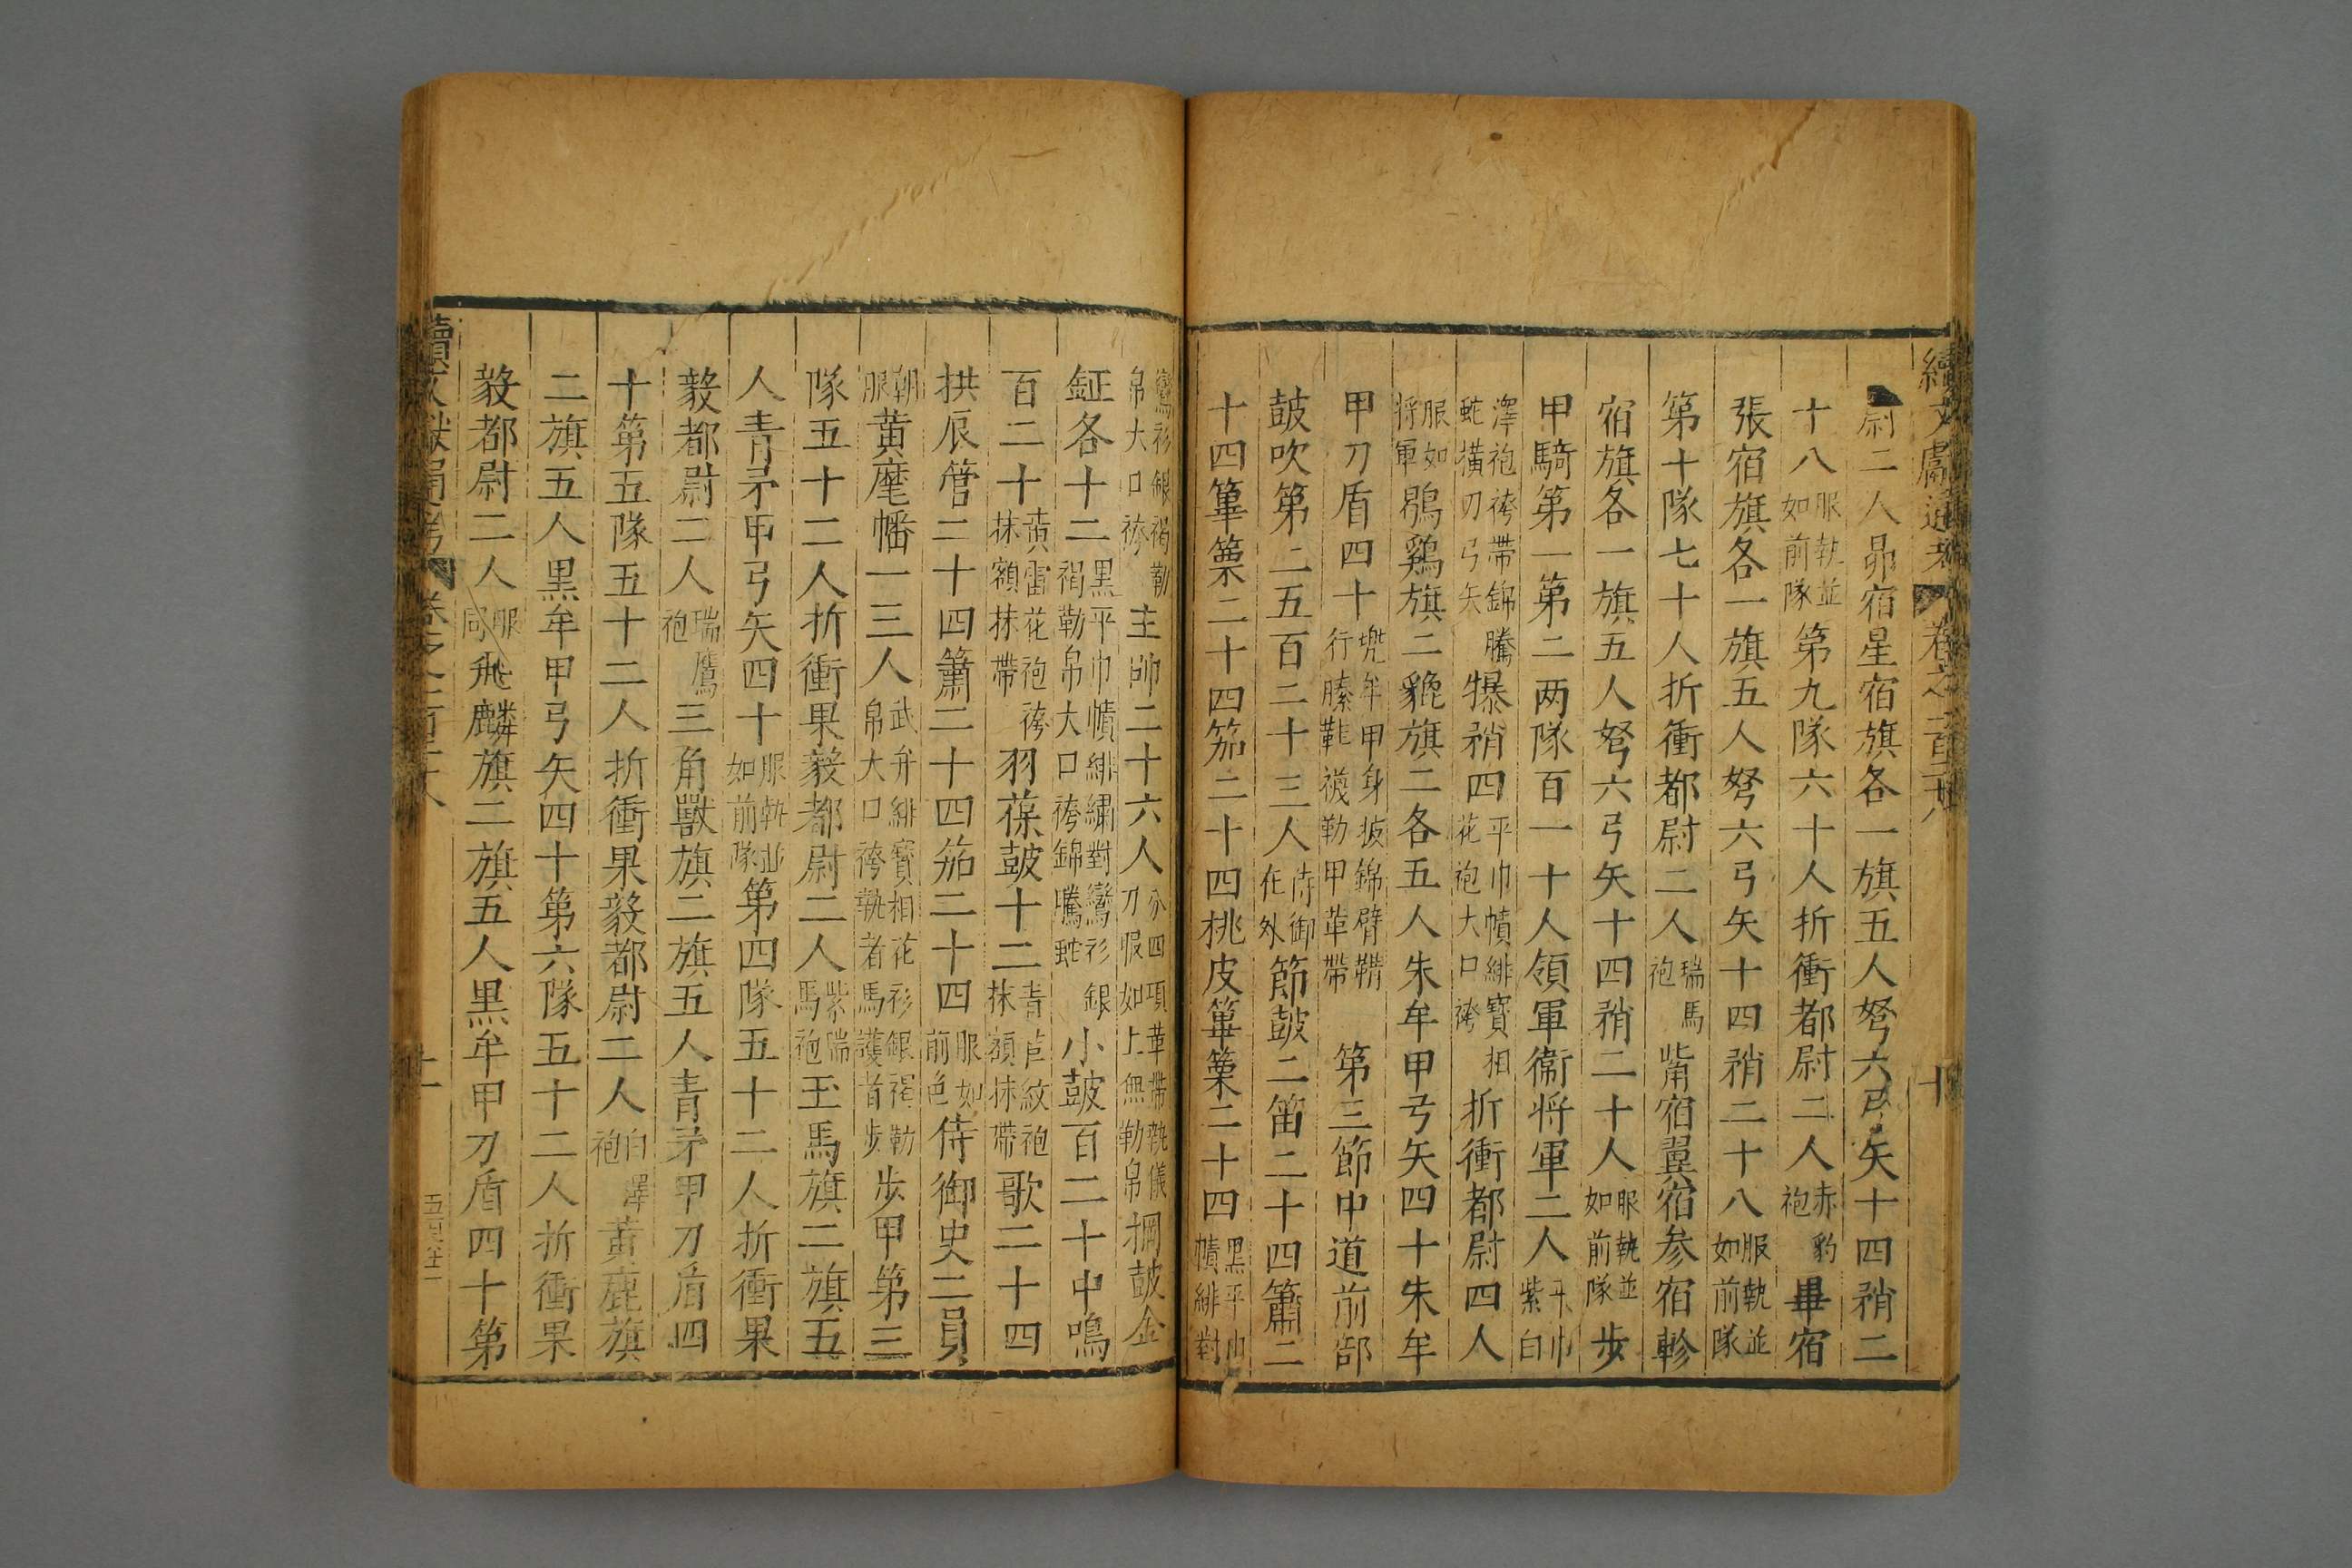 續文獻通考 卷之一百十八 十
尉二人昴宿星宿旗各一旗五人弩六弓矢十四矟二
十八服執並如前隊第九隊六十人折衝都尉二人赤豹袍畢宿
張宿旗各一旗五人弩六弓矢十四矟二十八服執並如前隊
第十隊七十人折衝都尉二人瑞馬袍觜宿翼宿參宿軫
宿旗各一旗五人弩六弓矢十四矟二十人服執並如前隊步
甲騎第一第二两隊百一十人領軍衞将軍二人平巾紫白
澤袍袴帶錦騰蛇橫刀弓矢犦矟四平巾幘緋寳相花袍大口袴折衝都尉四人
服如将軍鶡鷄旗二貔旗二各五人朱牟甲弓矢四十朱牟
甲刀盾四十兜牟甲身披錦臂韝行縢鞋襪勒甲革帶第三節中道前部
鼓吹第二五百二十三人侍御在外節鼓二笛二十四簫二
十四篳篥二十四笳二十四桃皮篳篥二十四黒平巾幘緋對
鸞衫銀褐勒帛大口袴主帥二十六人分四項革帶執儀刀服如上無勒帛掆鼓金
鉦各十二黒平巾幘緋繍對鸞衫銀褐勒帛大口袴錦騰蛇小鼓百二十中鳴
百二十黄雷花袍袴抹額抹帶羽葆鼓十二青苣紋袍抹額抹帶歌二十四
拱辰管二十四簫二十四笳二十四服如前色侍御史二員
朝服黄麾幡一三人武弁緋寳相花衫銀褐勒帛大口袴執者馬護首步步甲第三
隊五十二人折衝果毅都尉二人紫瑞馬袍玉馬旗二旗五
人青矛甲弓矢四十服執並如前隊第四隊五十二人折衝果
毅都尉二人瑞鷹袍三角獸旗二旗五人青矛甲刀盾四
十第五隊五十二人折衝果毅都尉二人白澤袍黃鹿旗
二旗五人黒牟甲弓矢四十第六隊五十二人折衝果
毅都尉二人服同飛麟旗二旗五人黒牟甲刀盾四十第
續文獻通考 卷之一百十八 十一